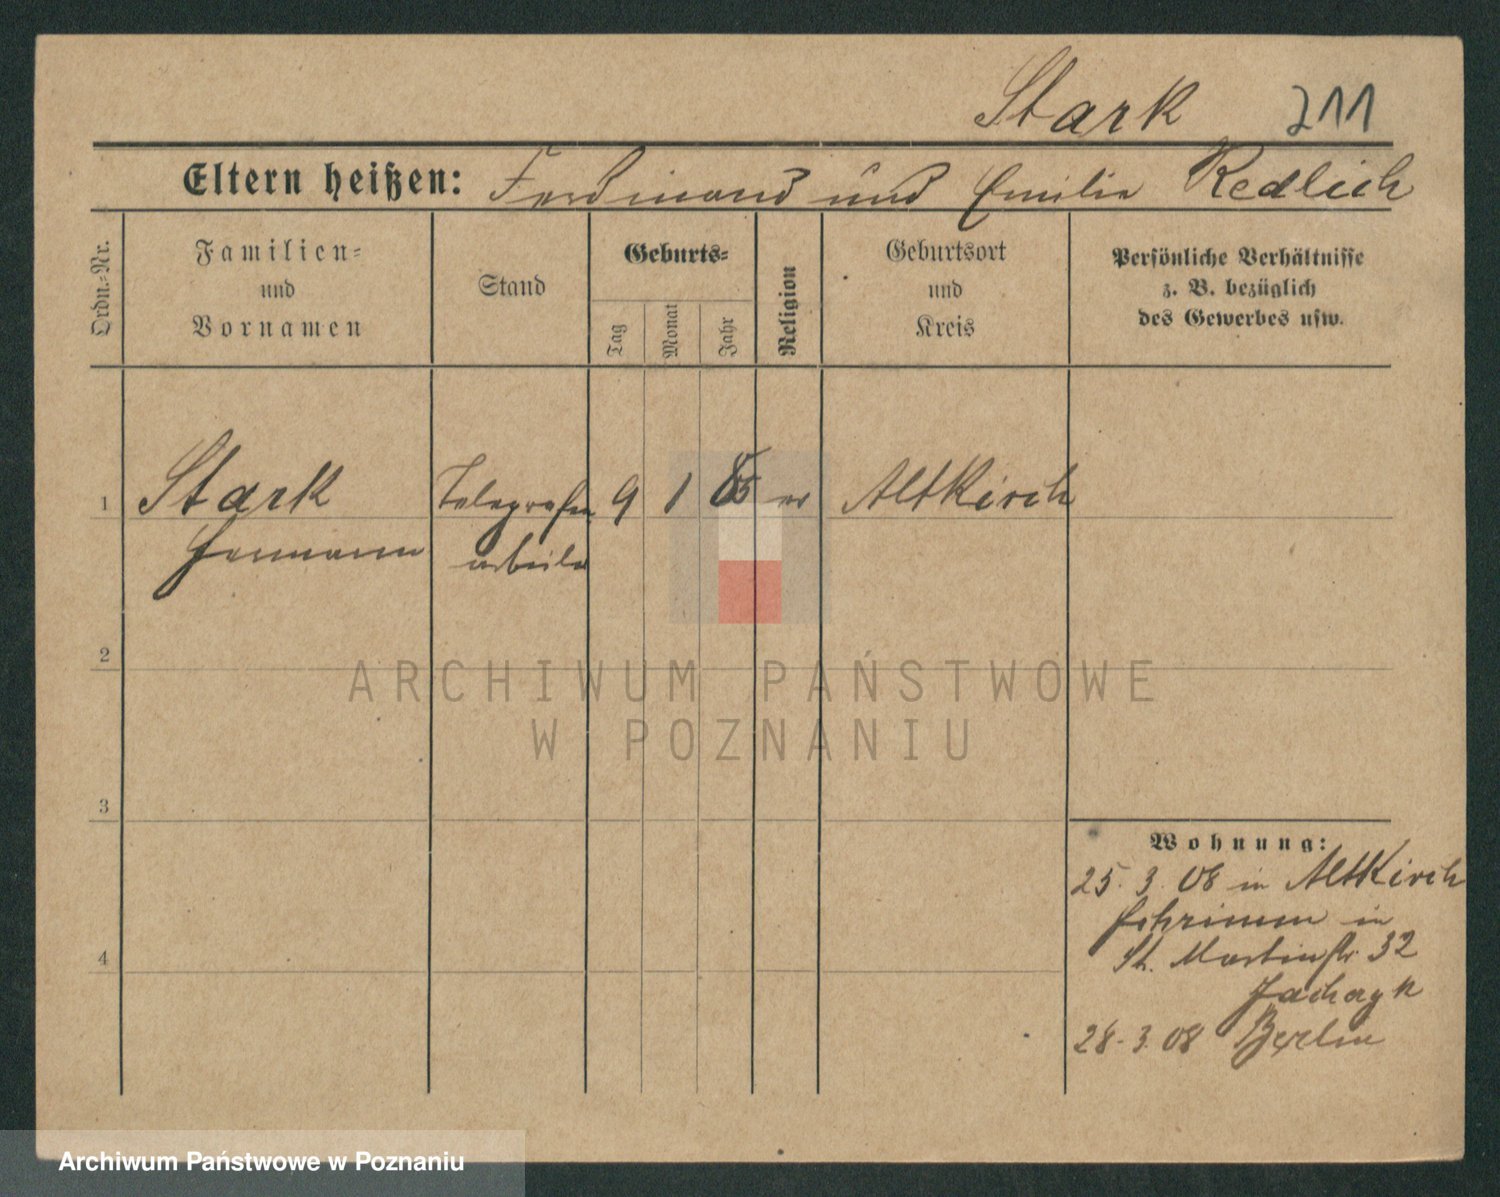 Stark 211
Eltern heißen: Ferdinand und Emilie Redlich
Ordn.-Nr.
Familien-
und
Vornamen
Stand
Geburts-
Tag
Monat
Jahr
Religion
Geburtsort
und
Kreis
Persönliche Verhältnisse
z. B. bezüglich
des Gewerbes usw.
1 Stark Telegrafen 9 1 85 ev Altkirch
Hermann arbeiter
2
3
4
Wohnung:
25. 3. 08 in Altkirch
Schrimm in
St. Martinstr. 32
28. 3. 08 Berlin
ARCHIWUM PAŃSTWOWE
W POZNANIU
Archiwum Państwowe w Poznaniu